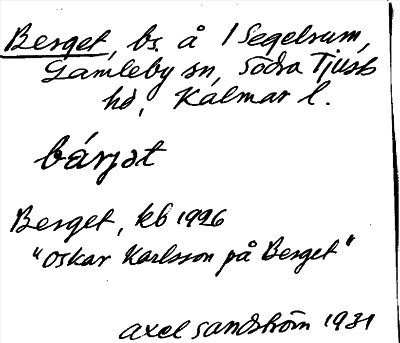 Berget, bs. å 1 Segelrum,
Gamleby sn, Södra Tjusts
hd, Kalmar l.
bárjət
Berget, kb 1926
"Oskar Karlsson på Berget"
Axel Sandström 1931